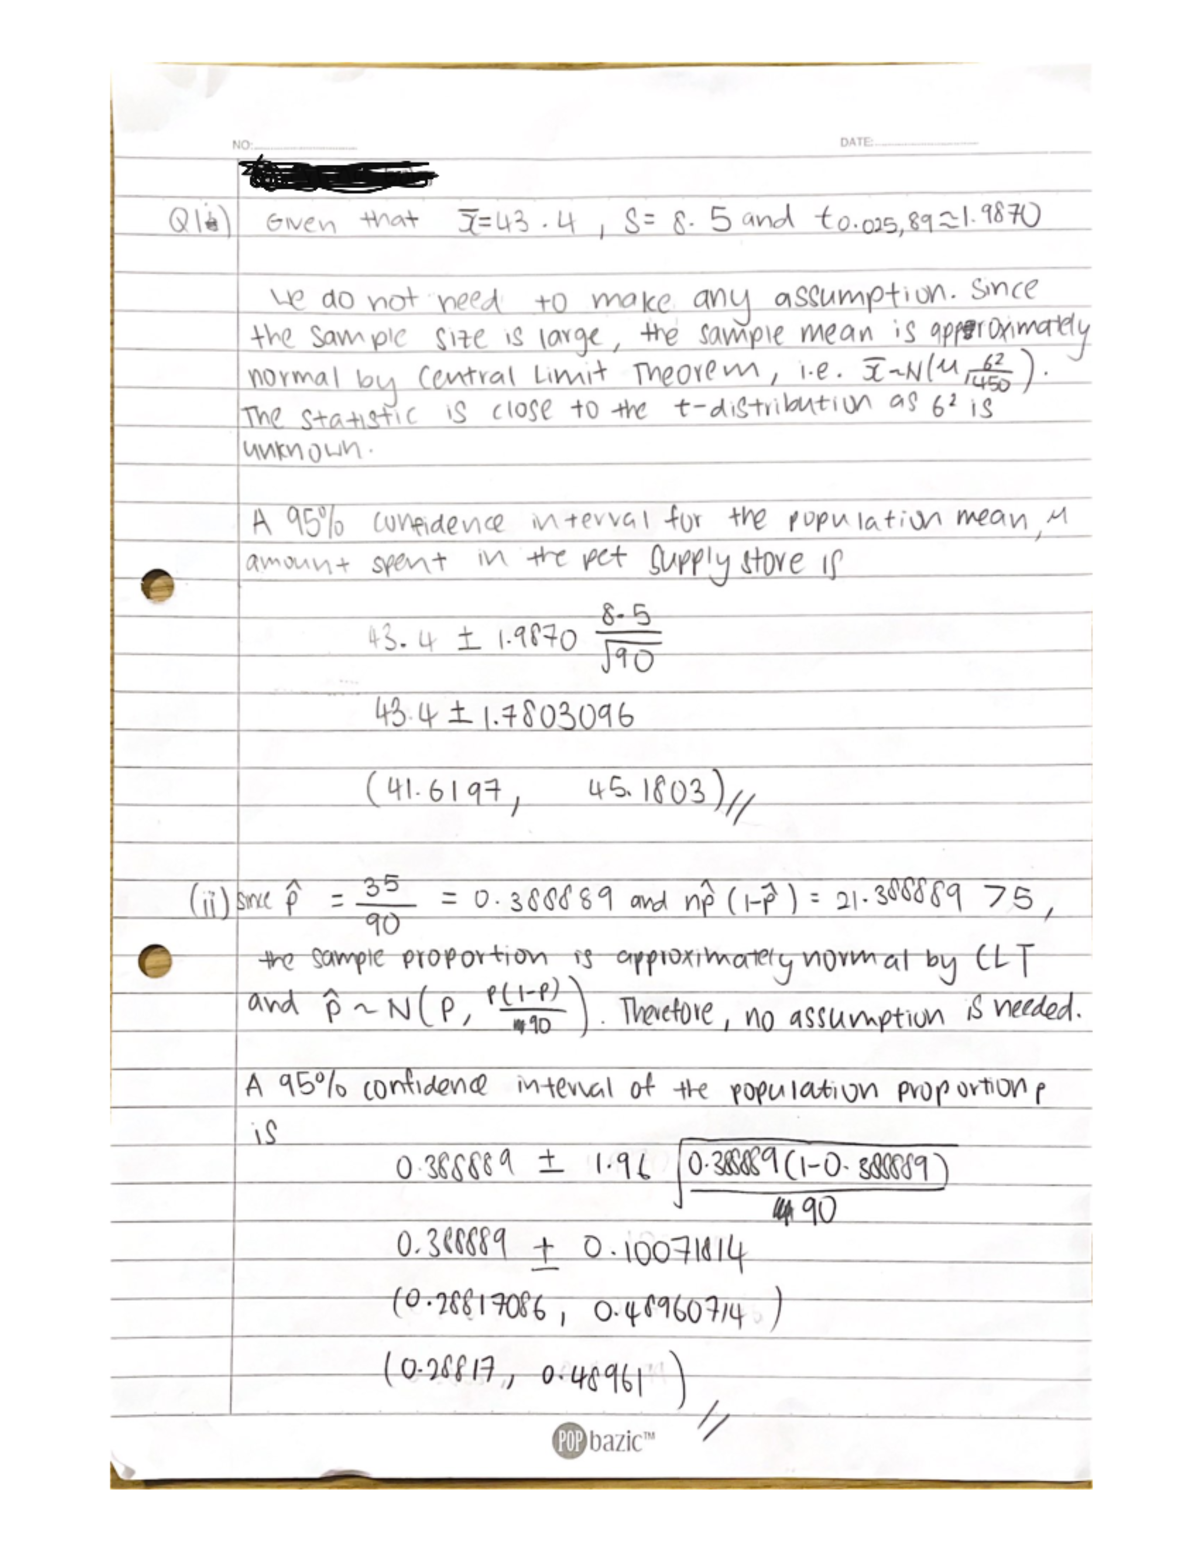 NO:
DATE:
Q1i) Given that x̄=43.4, S= 8.5 and t0.025,89≈1.9870
We do not need to make any assumption. Since
the sample size is large, the sample mean is approximately
normal by Central Limit Theorem, i.e. x̄~N(μ, σ²/√450).
The statistic is close to the t-distribution as σ² is
unknown.
A 95% confidence interval for the population mean, μ
amount spent in the pet supply store is
43.4 ± 1.9870 8.5/√90
43.4 ± 1.7803096
(41.6197, 45.1803)//
(ii) since p̂ = 35/90 = 0.388889 and np̂(1-p̂) = 21.388889 >5,
the sample proportion is approximately normal by CLT
and p̂ ~ N(P, P(1-P)/90). Therefore, no assumption is needed.
A 95% confidence interval of the population proportion p
is
0.388889 ± 1.96 √0.388889(1-0.388889)/90
0.388889 ± 0.10071814
(0.28817086, 0.48960714)
(0.28817, 0.48961)//
POP bazic™